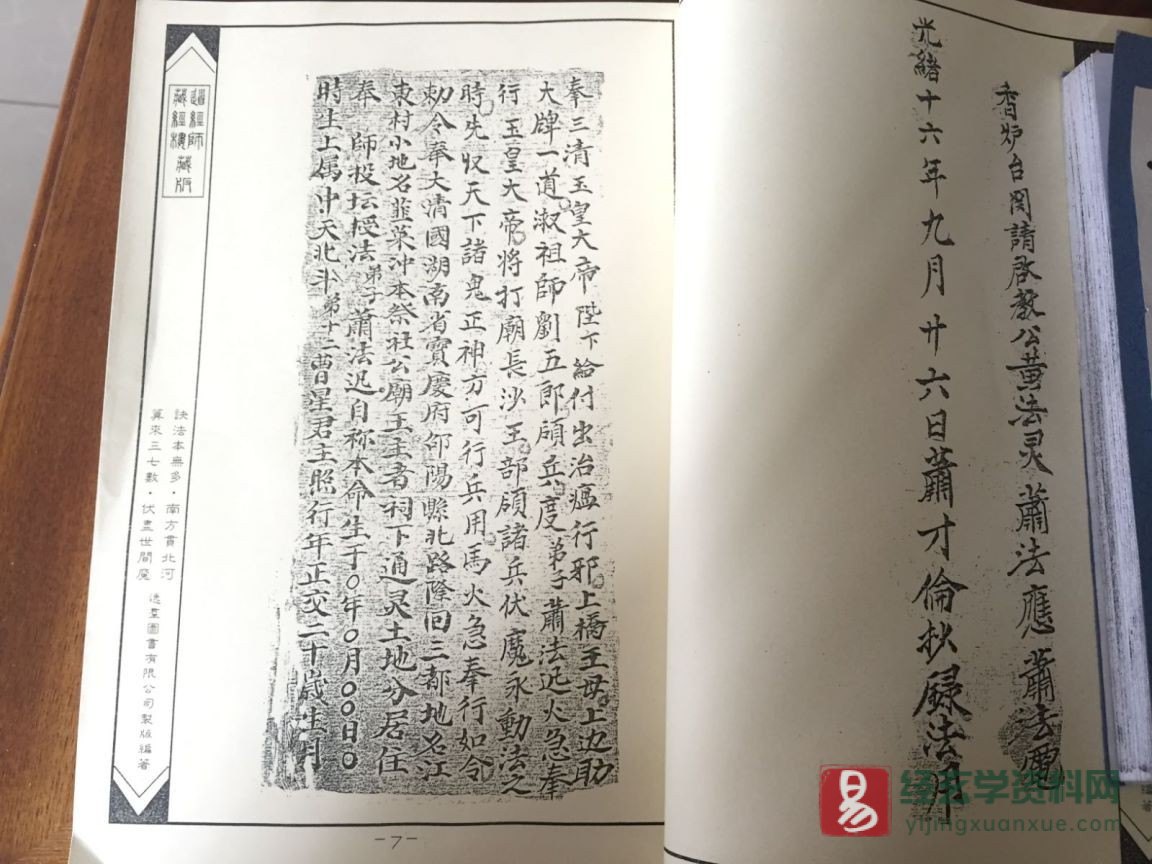 香炉台閣請啓教公黄法灵蕭法應蕭法
光緒十六年九月廿六日蕭才倫抄録法
奉三清玉皇大帝陛下給付出治瘟行邪上橋王母上边助
大牌一道淑祖師劉五郎頋兵度弟子蕭法迅火急奉
行玉皇大帝将打廟長沙王部領諸兵伏魔永動法之
時先収天下諸鬼正神方可行兵用馬火急奉行如令
勅令奉大清國湖南省寳慶府邵陽縣北路隆回三都地名江
東村小地名韮菜冲本祭社公廟王主者祠下通灵土地分居住
奉師投坛授法弟子蕭法迅自称本命生于〇年〇月〇〇日〇
時生上属中天北斗第十二曹星君主照行年正交二十歲生月
道經師
藏經樓藏版
訣法本無多·南方貫北河
算來三七數·伏盡世間魔
逸羣圖書有限公司製版編著
-7-
易
经玄学资料网
yijingxuanxue.com